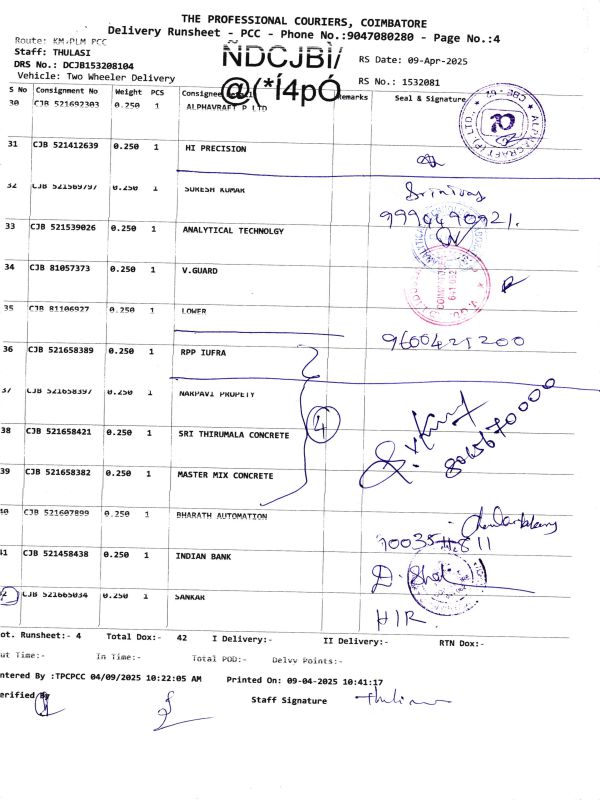 THE PROFESSIONAL COURIERS, COIMBATORE
Delivery Runsheet - PCC - Phone No.:9047080280 - Page No.:4
Route: KM-PLM PCC
Staff: THULASI
DRS No.: DCJB153208104
Vehicle: Two Wheeler Delivery
ÑDCJBÌ/
@(*Í4pÓ
RS Date: 09-Apr-2025
RS No.: 1532081
S No Consignment No Weight PCS Consignee Remarks Seal & Signature
30 CJB 521692303 0.250 1 ALPHAVRAFT P LTD
31 CJB 521412639 0.250 1 HI PRECISION
32 CJB 521569797 0.250 1 SURESH KUMAR Srinivas
9994490921.
33 CJB 521539026 0.250 1 ANALYTICAL TECHNOLGY
34 CJB 81057373 0.250 1 V.GUARD
35 CJB 81106927 0.250 1 LOWER
9600425200
36 CJB 521658389 0.250 1 RPP IUFRA
37 CJB 521658397 0.250 1 NARPAVI PROPETY
4
38 CJB 521658421 0.250 1 SRI THIRUMALA CONCRETE
39 CJB 521658382 0.250 1 MASTER MIX CONCRETE
40 CJB 521607899 0.250 1 BHARATH AUTOMATION
41 CJB 521458438 0.250 1 INDIAN BANK
42 CJB 521665034 0.250 1 SANKAR
H/R.
ot. Runsheet:- 4 Total Dox:- 42 I Delivery:- II Delivery:- RTN Dox:-
ut Time:- In Time:- Total POD:- Delvv Points:-
ntered By :TPCPCC 04/09/2025 10:22:05 AM Printed On: 09-04-2025 10:41:17
erified By Staff Signature